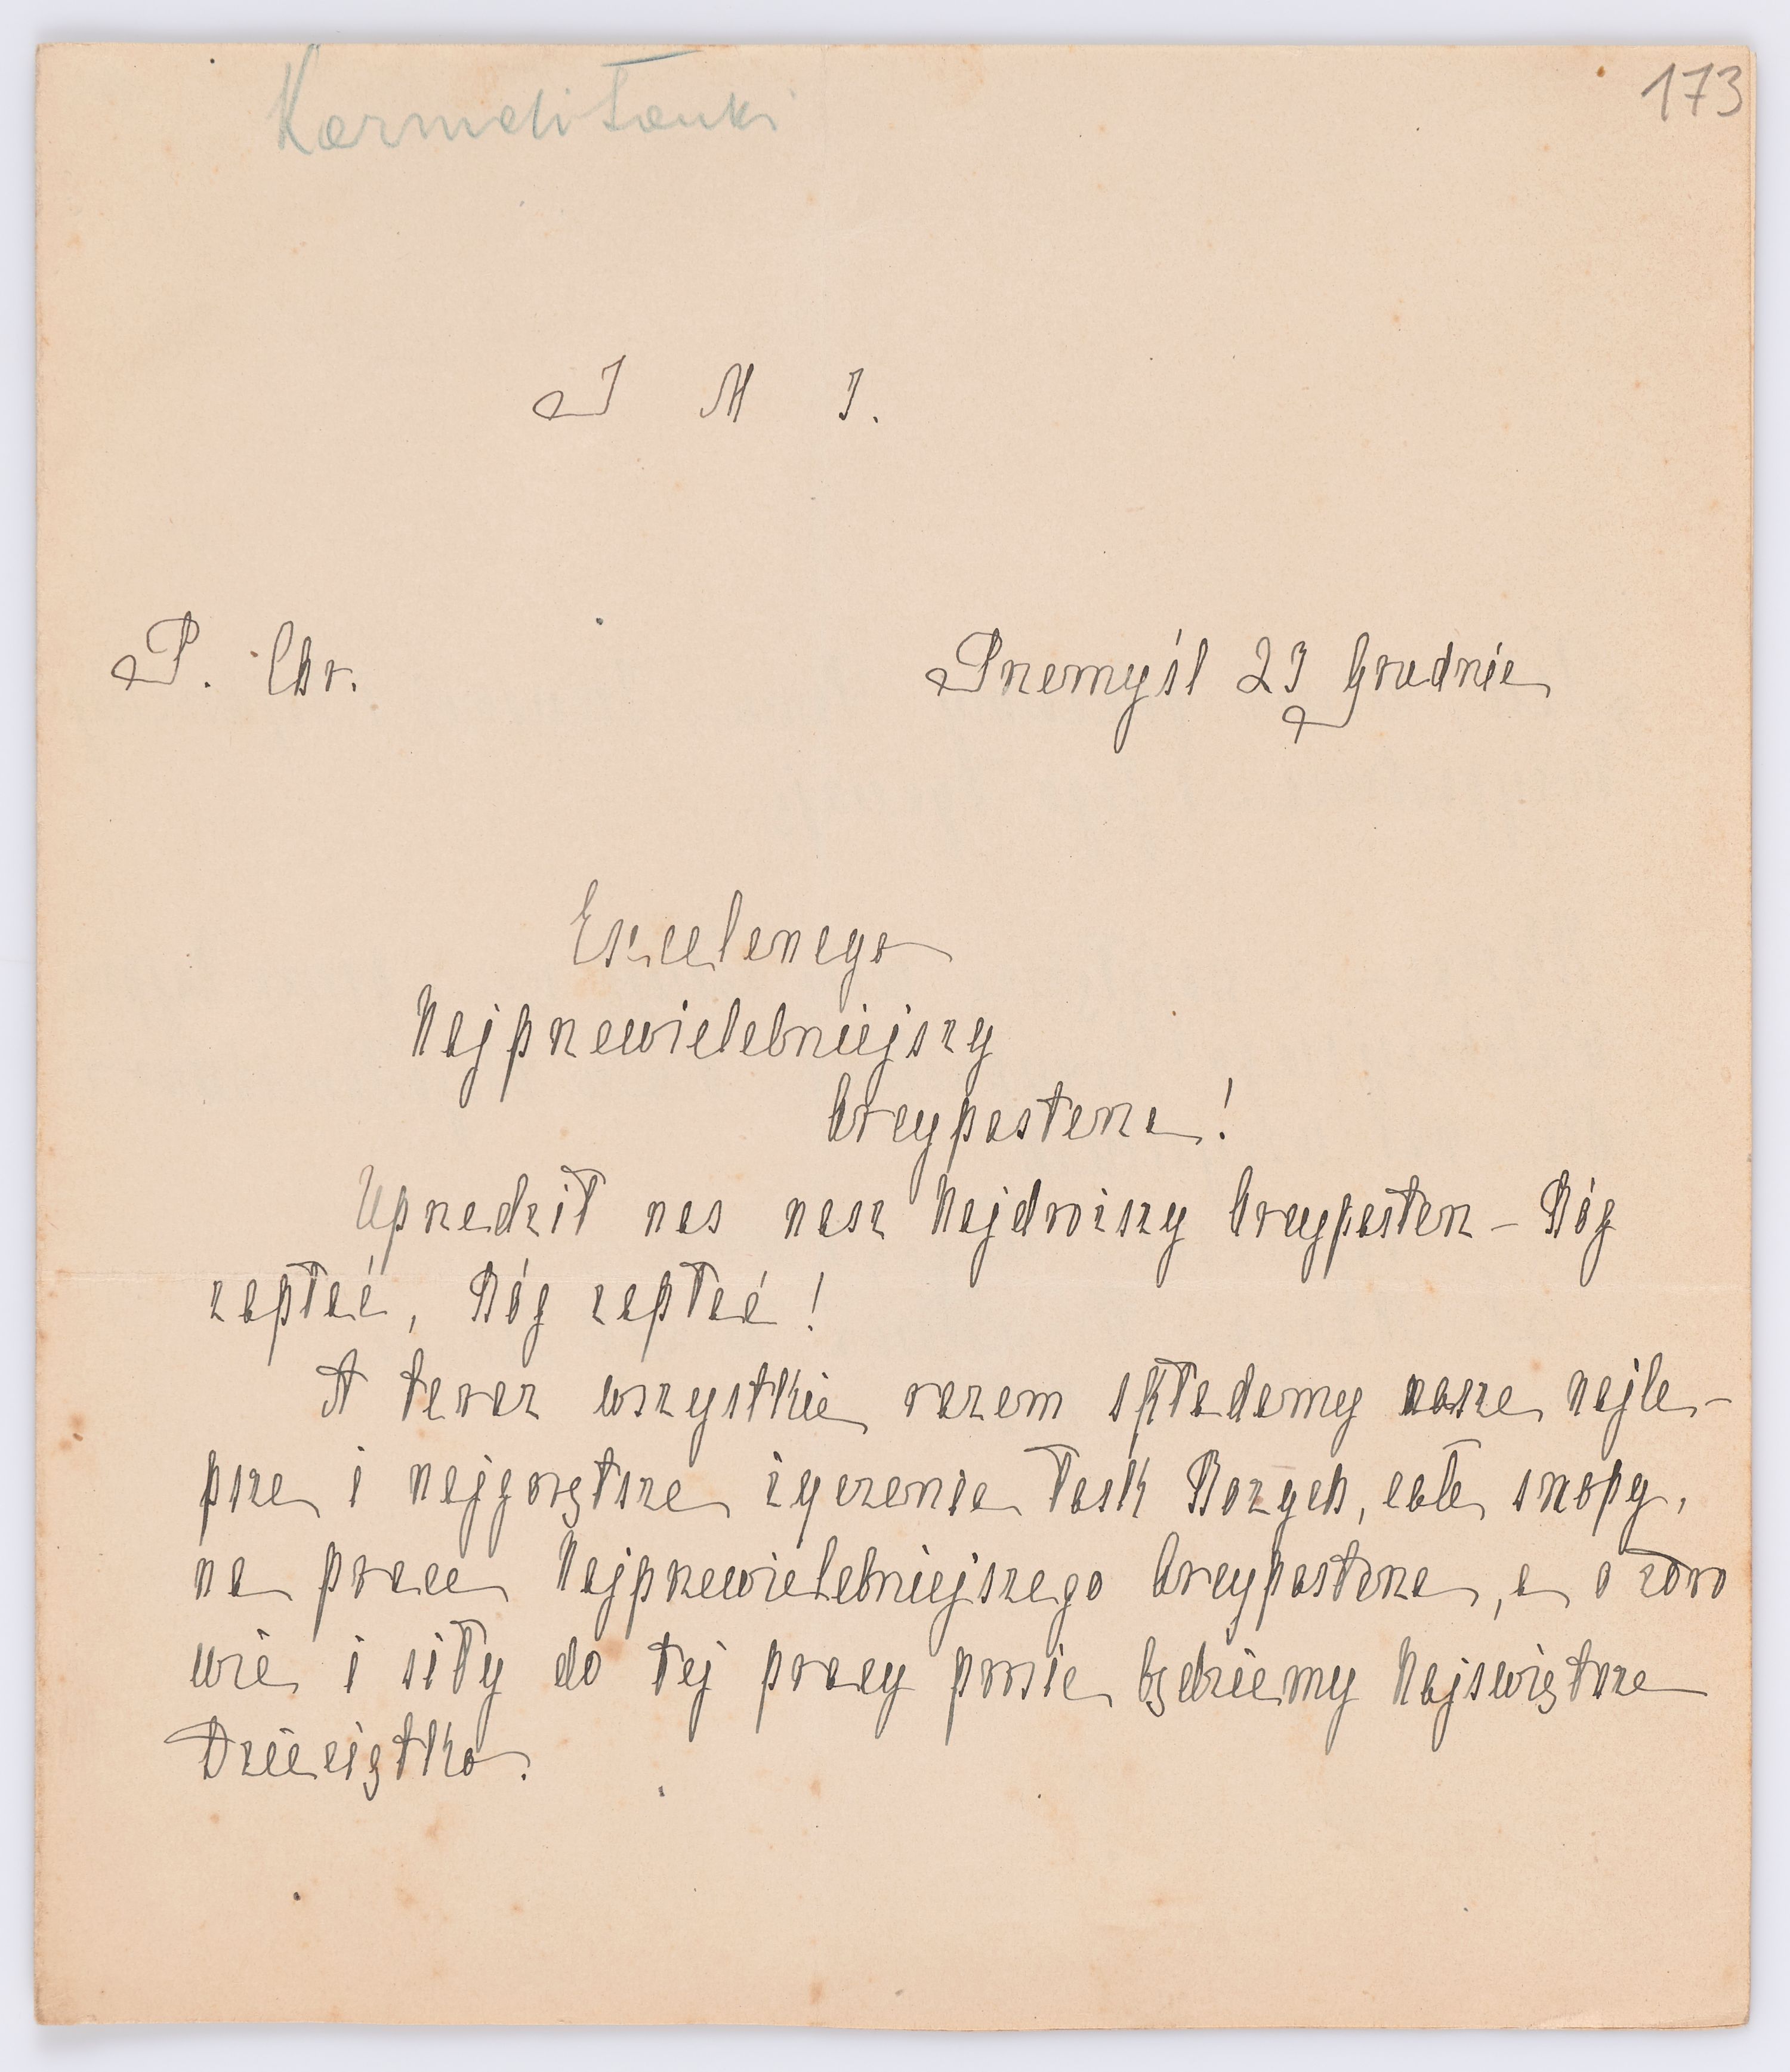 Karmelitanki
173
J M J.
P. Chr.
Przemyśl 23 Grudnia
Najprzewielebniejszy
Arcypasterzu!
Uprzedził nas nasz Najdroższy Arcypasterz – Bóg
zapłać, Bóg zapłać!
A teraz wszystkie razem składamy nasze najle-
psze i najgorętsze życzenia łask Bożych, całe snopy,
na prace Najprzewielebniejszego Arcypasterza, a o zdro
wie i siły do tej pracy prosić będziemy Najświętsze
Dzieciątko.